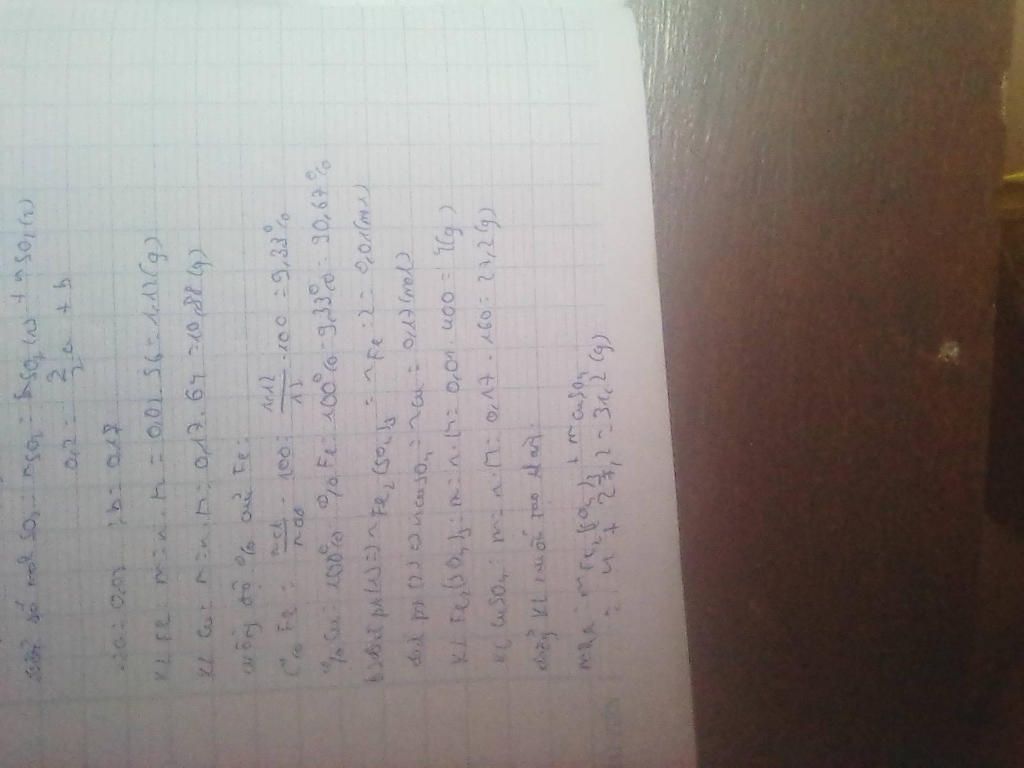 số mol SO₂: nSO₂ = nSO₂ (1) + nSO₂ (2)
0,2 = 3/2 a + b
a = 0,02 ; b = 0,17
KL Fe: m = n . M = 0,02 . 56 = 1,12 (g)
KL Cu: m = n . M = 0,17 . 64 = 10,88 (g)
độ % của Fe:
C% Fe = mct / . 100 = 1,12 / 12 . 100 = 9,33%
% Cu = 100% - % Fe = 100% - 9,33% = 90,67%
b) pứ (1) => nFe₂(SO₄)₃ = nFe : 2 = 0,01 (mol)
pứ (2) => nCuSO₄ = nCu = 0,17 (mol)
KL Fe₂(SO₄)₃ = m = n . M = 0,01 . 400 = 4 (g)
KL CuSO₄ = m = n . M = 0,17 . 160 = 27,2 (g)
KL muối tạo
m = mFe₂(SO₄)₃ + mCuSO₄
= 4 + 27,2 = 31,2 (g)